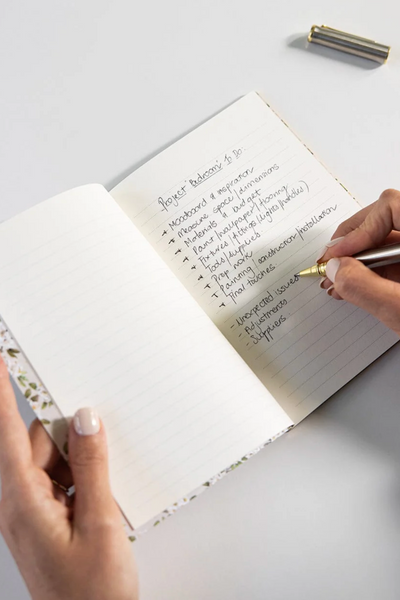 Project 'Bedroom' To Do
+ Moodboard & inspiration
+ Measure space / dimensions
+ Materials & budget
+ Paint / wallpaper / flooring
+ Fixtures / fittings (lights / handles)
+ Tools / supplies
+ Prep work
+ Painting / construction / installation
+ Final touches
- Unexpected issues
- Adjustments
- Suppliers